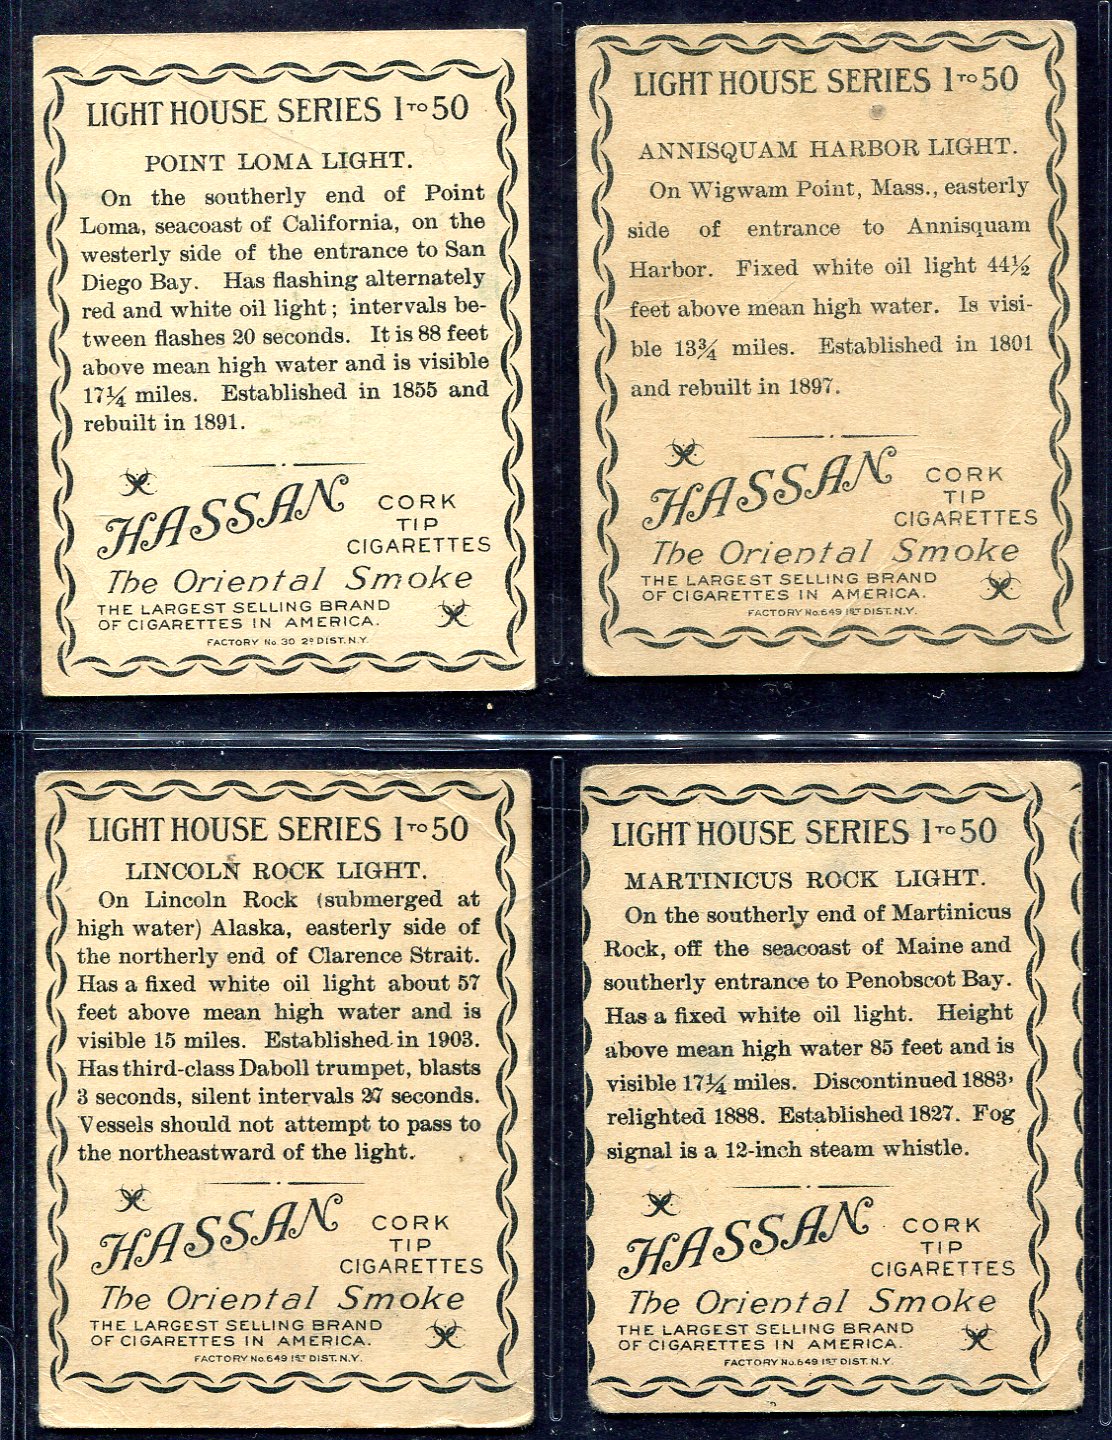 LIGHT HOUSE SERIES 1 TO 50
POINT LOMA LIGHT.
On the southerly end of Point
Loma, seacoast of California, on the
westerly side of the entrance to San
Diego Bay. Has flashing alternately
red and white oil light; intervals be-
tween flashes 20 seconds. It is 88 feet
above mean high water and is visible
17¼ miles. Established in 1855 and
rebuilt in 1891.
HASSAN CORK
TIP
CIGARETTES
The Oriental Smoke
THE LARGEST SELLING BRAND
OF CIGARETTES IN AMERICA.
FACTORY No. 30 2D DIST. N.Y.
LIGHT HOUSE SERIES 1 TO 50
ANNISQUAM HARBOR LIGHT.
On Wigwam Point, Mass., easterly
side of entrance to Annisquam
Harbor. Fixed white oil light 44½
feet above mean high water. Is visi-
ble 13¾ miles. Established in 1801
and rebuilt in 1897.
HASSAN CORK
TIP
CIGARETTES
The Oriental Smoke
THE LARGEST SELLING BRAND
OF CIGARETTES IN AMERICA.
FACTORY No. 649 1ST DIST. N.Y.
LIGHT HOUSE SERIES 1 TO 50
LINCOLN ROCK LIGHT.
On Lincoln Rock (submerged at
high water) Alaska, easterly side of
the northerly end of Clarence Strait.
Has a fixed white oil light about 57
feet above mean high water and is
visible 15 miles. Established in 1903.
Has third-class Daboll trumpet, blasts
3 seconds, silent intervals 27 seconds.
Vessels should not attempt to pass to
the northeastward of the light.
HASSAN CORK
TIP
CIGARETTES
The Oriental Smoke
THE LARGEST SELLING BRAND
OF CIGARETTES IN AMERICA.
FACTORY No. 649 1ST DIST. N.Y.
LIGHT HOUSE SERIES 1 TO 50
MARTINICUS ROCK LIGHT.
On the southerly end of Martinicus
Rock, off the seacoast of Maine and
southerly entrance to Penobscot Bay.
Has a fixed white oil light. Height
above mean high water 85 feet and is
visible 17¼ miles. Discontinued 1883,
relighted 1888. Established 1827. Fog
signal is a 12-inch steam whistle.
HASSAN CORK
TIP
CIGARETTES
The Oriental Smoke
THE LARGEST SELLING BRAND
OF CIGARETTES IN AMERICA.
FACTORY No. 649 1ST DIST. N.Y.